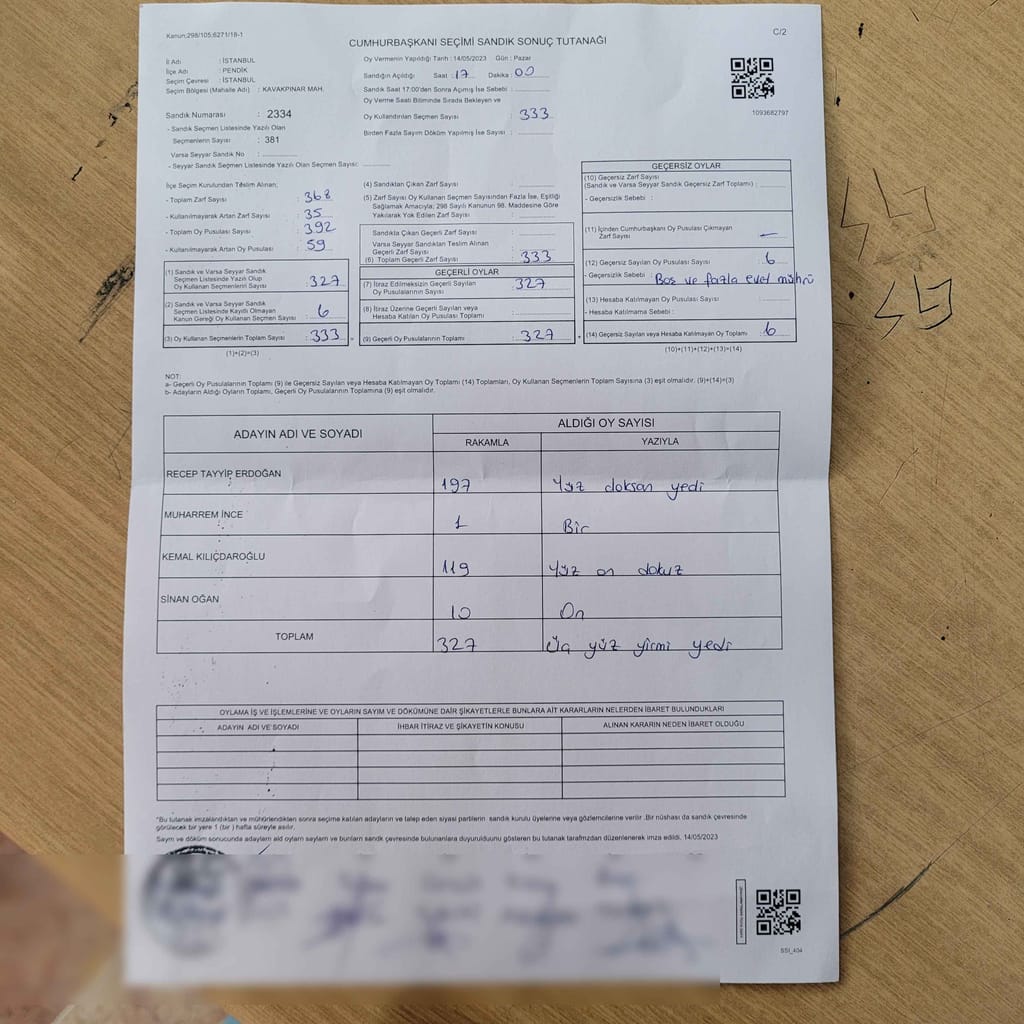 Kanun;298/105;6271/18-1
C/2
CUMHURBAŞKANI SEÇİMİ SANDIK SONUÇ TUTANAĞI
İl Adı : İSTANBUL
İlçe Adı : PENDİK
Seçim Çevresi : İSTANBUL
Seçim Bölgesi (Mahalle Adı) : KAVAKPINAR MAH.
Sandık Numarası : 2334
- Sandık Seçmen Listesinde Yazılı Olan
Seçmenlerin Sayısı : 381
Varsa Seyyar Sandık No :
- Seyyar Sandık Seçmen Listesinde Yazılı Olan Seçmen Sayısı:
Oy Vermenin Yapıldığı Tarih : 14/05/2023 Gün : Pazar
Sandığın Açıldığı Saat : 17 Dakika : 00
Sandık Saat 17:00'den Sonra Açımış İse Sebebi :
Oy Verme Saati Bitiminde Sırada Bekleyen ve
Oy Kullandırılan Seçmen Sayısı : 333
Birden Fazla Sayım Döküm Yapılmış İse Sayısı :
1093682797
İlçe Seçim Kurulundan Teslim Alınan;
- Toplam Zarf Sayısı : 368
- Kullanılmayarak Artan Zarf Sayısı : 35
- Toplam Oy Pusulası Sayısı : 392
- Kullanılmayarak Artan Oy Pusulası : 59
(1) Sandık ve Varsa Seyyar Sandık
Seçmen Listesinde Yazılı Olup
Oy Kullanan Seçmenlerin Sayısı : 327
(2) Sandık ve Varsa Seyyar Sandık
Seçmen Listesinde Kayıtlı Olmayan
Kanun Gereği Oy Kullanan Seçmen Sayısı : 6
(3) Oy Kullanan Seçmenlerin Toplam Sayısı : 333
(1)+(2)=(3)
(4) Sandıktan Çıkan Zarf Sayısı :
(5) Zarf Sayısı Oy Kullanan Seçmen Sayısından Fazla İse, Eşitliği
Sağlamak Amacıyla; 298 Sayılı Kanunun 98. Maddesine Göre
Yakılarak Yok Edilen Zarf Sayısı :
Sandıkla Çıkan Geçerli Zarf Sayısı :
Varsa Seyyar Sandıktan Teslim Alınan
Geçerli Zarf Sayısı :
(6) Toplam Geçerli Zarf Sayısı : 333
GEÇERLİ OYLAR
(7) İtiraz Edilmeksizin Geçerli Sayılan
Oy Pusulalarının Sayısı : 327
(8) İtiraz Üzerine Geçerli Sayılan veya
Hesaba Katılan Oy Pusulası Toplamı :
(9) Geçerli Oy Pusulalarının Toplamı : 327
GEÇERSİZ OYLAR
(10) Geçersiz Zarf Sayısı
(Sandık ve Varsa Seyyar Sandık Geçersiz Zarf Toplamı) :
- Geçersizlik Sebebi :
(11) İçinden Cumhurbaşkanı Oy Pusulası Çıkmayan
Zarf Sayısı : —
(12) Geçersiz Sayılan Oy Pusulası Sayısı : 6
- Geçersizlik Sebebi : Boş ve fazla evet mührü
(13) Hesaba Katılmayan Oy Pusulası Sayısı :
- Hesaba Katılmama Sebebi :
(14) Geçersiz Sayılan veya Hesaba Katılmayan Oy Toplamı : 6
(10)+(11)+(12)+(13)=(14)
NOT:
a- Geçerli Oy Pusulalarının Toplamı (9) ile Geçersiz Sayılan veya Hesaba Katılmayan Oy Toplamı (14) Toplamları, Oy Kullanan Seçmenlerin Toplam Sayısına (3) eşit olmalıdır. (9)+(14)=(3)
b- Adayların Aldığı Oyların Toplamı, Geçerli Oy Pusulalarının Toplamına (9) eşit olmalıdır.
ADAYIN ADI VE SOYADI
ALDIĞI OY SAYISI
RAKAMLA YAZIYLA
RECEP TAYYİP ERDOĞAN 197 Yüz doksan yedi
MUHARREM İNCE 1 Bir
KEMAL KILIÇDAROĞLU 119 Yüz on dokuz
SİNAN OĞAN 10 On
TOPLAM 327 Üç yüz yirmi yedi
OYLAMA İŞ VE İŞLEMLERİNE VE OYLARIN SAYIM VE DÖKÜMÜNE DAİR ŞİKAYETLERLE BUNLARA AİT KARARLARIN NELERDEN İBARET BULUNDUKLARI
ADAYIN ADI VE SOYADI İHBAR İTİRAZ VE ŞİKAYETİN KONUSU ALINAN KARARIN NEDEN İBARET OLDUĞU
"Bu tutanak imzalandıktan ve mühürlendikten sonra seçime katılan adayların ve talep eden siyasi partilerin sandık kurulu üyelerine veya gözlemcilerine verilir .Bir nüshası da sandık çevresinde
görülecek bir yere 1 (bir ) hafta süreyle asılır.
Sayım ve döküm sonucunda adayların aldığı oyların sayılarını ve bunların sandık çevresinde bulunanlara duyurulduğunu gösteren bu tutanak tarafımızdan düzenlenerek imza edildi. 14/05/2023
SSI_404